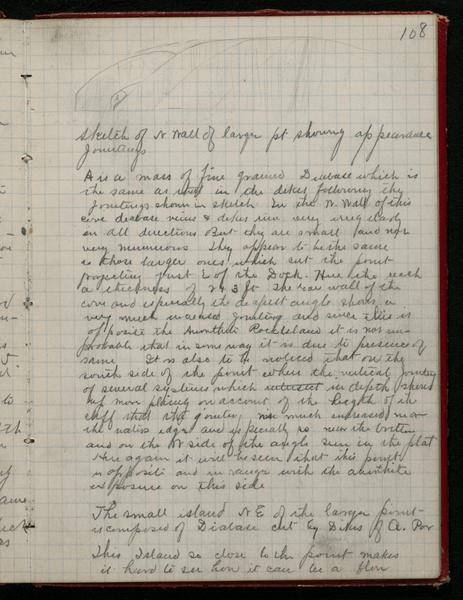 108
Sketch of N Wall of larger pt showing appearance
Jointings
A is a mass of fine grained Diabase which is
the same as in the dikes following the
Jointings shown in sketch In the N. Wall of this
cove diabase veins & dikes run very irregularly
in all directions But they are small and not
very numerous They appear to be the same
as those larger ones which cut the point
projecting just E of the Dock. Here the reach
a thickness of 2 & 3 ft The rear wall of the
cove and especially the deepest angle shows a
very much increased jointing and since this is
opposite the Anorthite Rocks Island it is not im-
probable that in some way it is due to presence of
same It is also to be noticed that on the
south side of the point where the vertical jointing
of several systems which in depth should
on account of the height of the
cliff that the jointing much increased near
the waters edge and especially so near the bottom
and on the N side of the angle seen in the flat
Here again it will be seen that this point
is opposite and in range with the anorthite
exposure on this side
The small island N E of the larger point
is composed of Diabase cut by Dikes of Q. Por
This Island so close to the point makes
it hard to see how it can be a flow